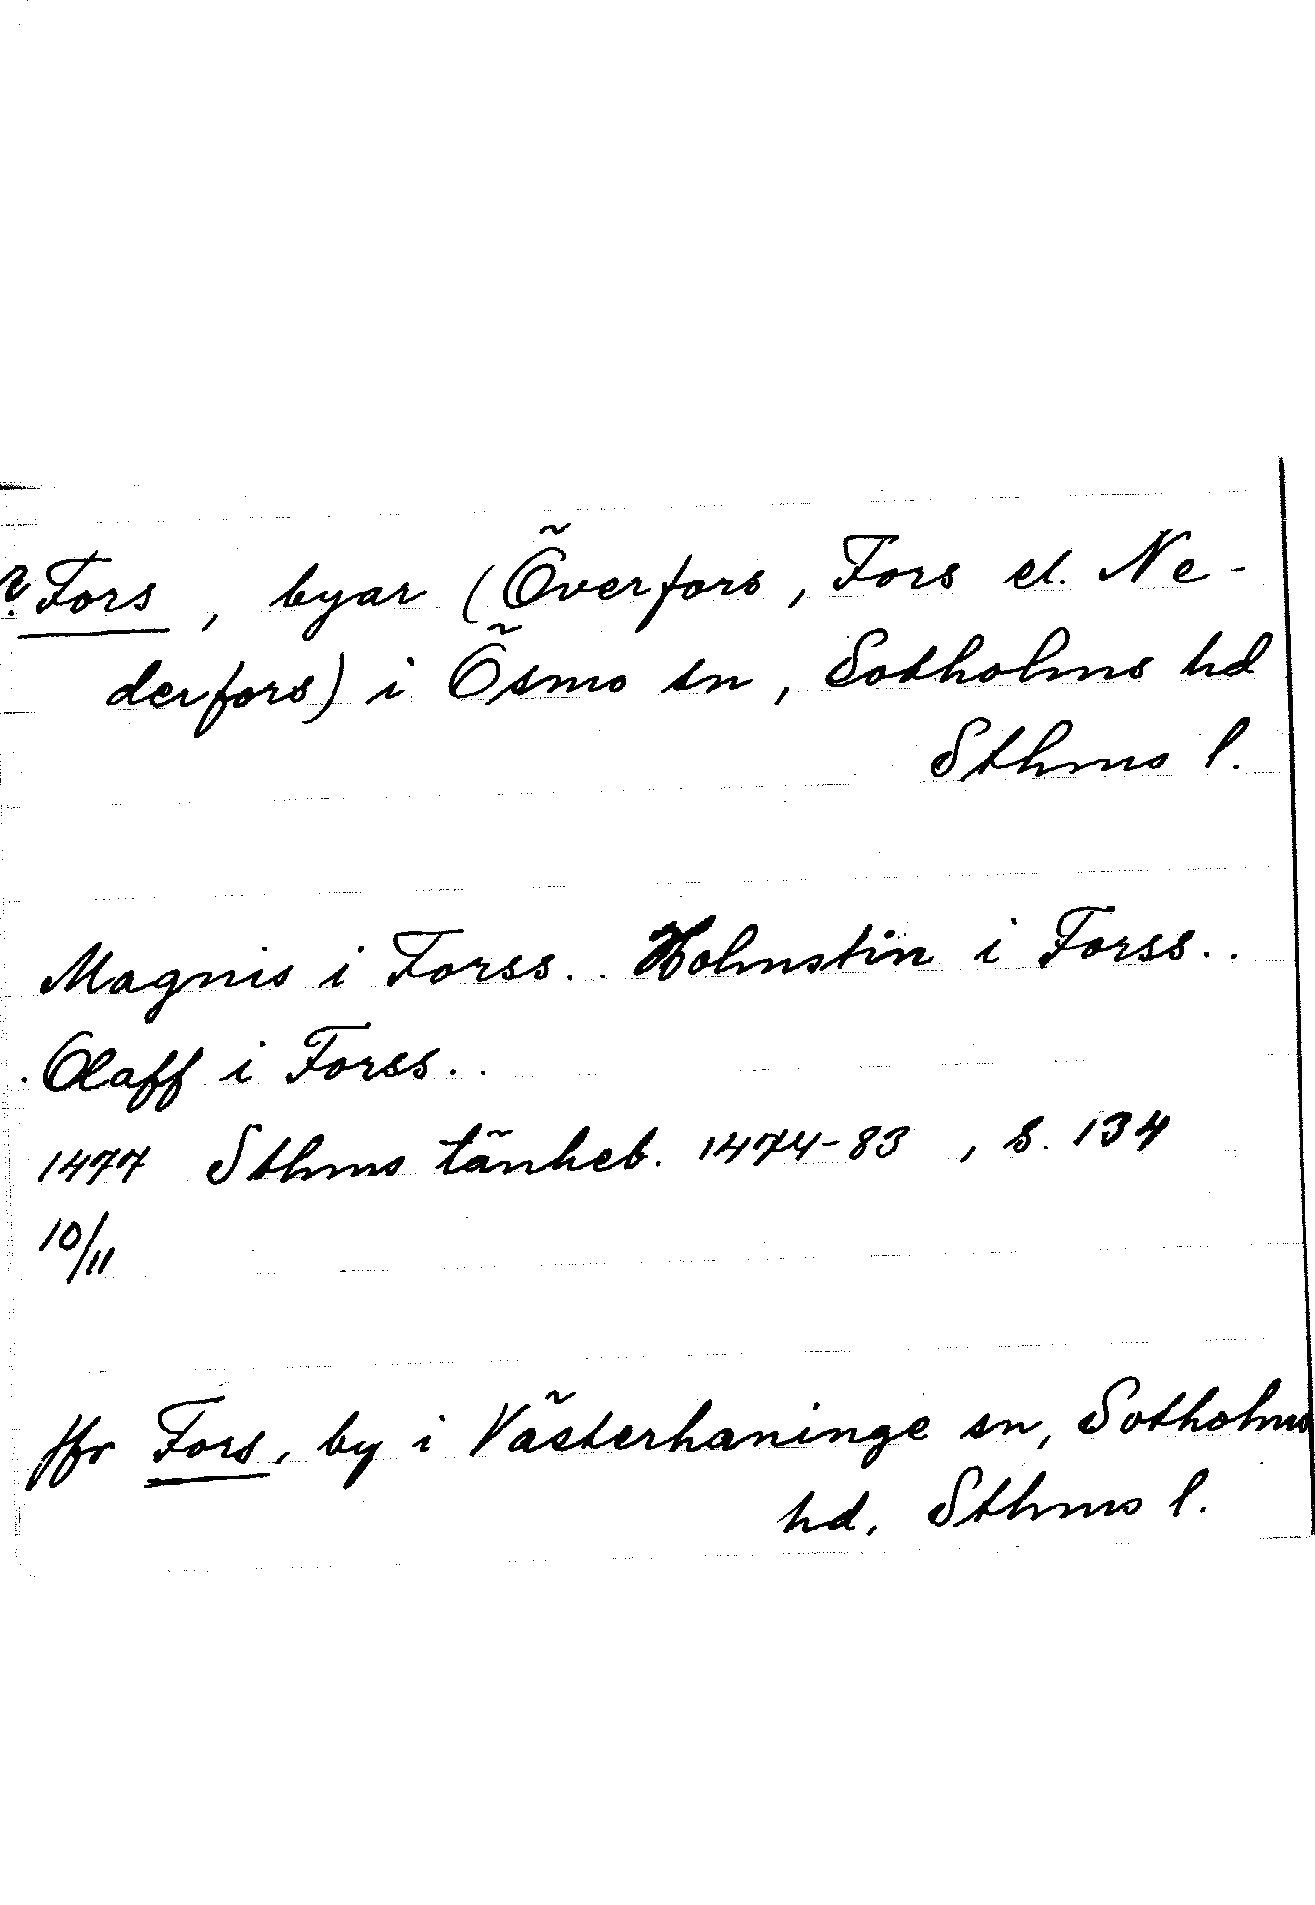 ? Fors, byar (Överfors, Fors el. Ne-
derfors) i Ösmo sn, Sotholms hd
Sthms l.
Magnis i Forss.. Holmstin i Forss..
Olaff i Forss..
1477 Sthms tänkeb. 1474-83, s. 134
10/11
Jfr Fors, by i Västerhaninge sn, Sotholms
hd, Sthms l.